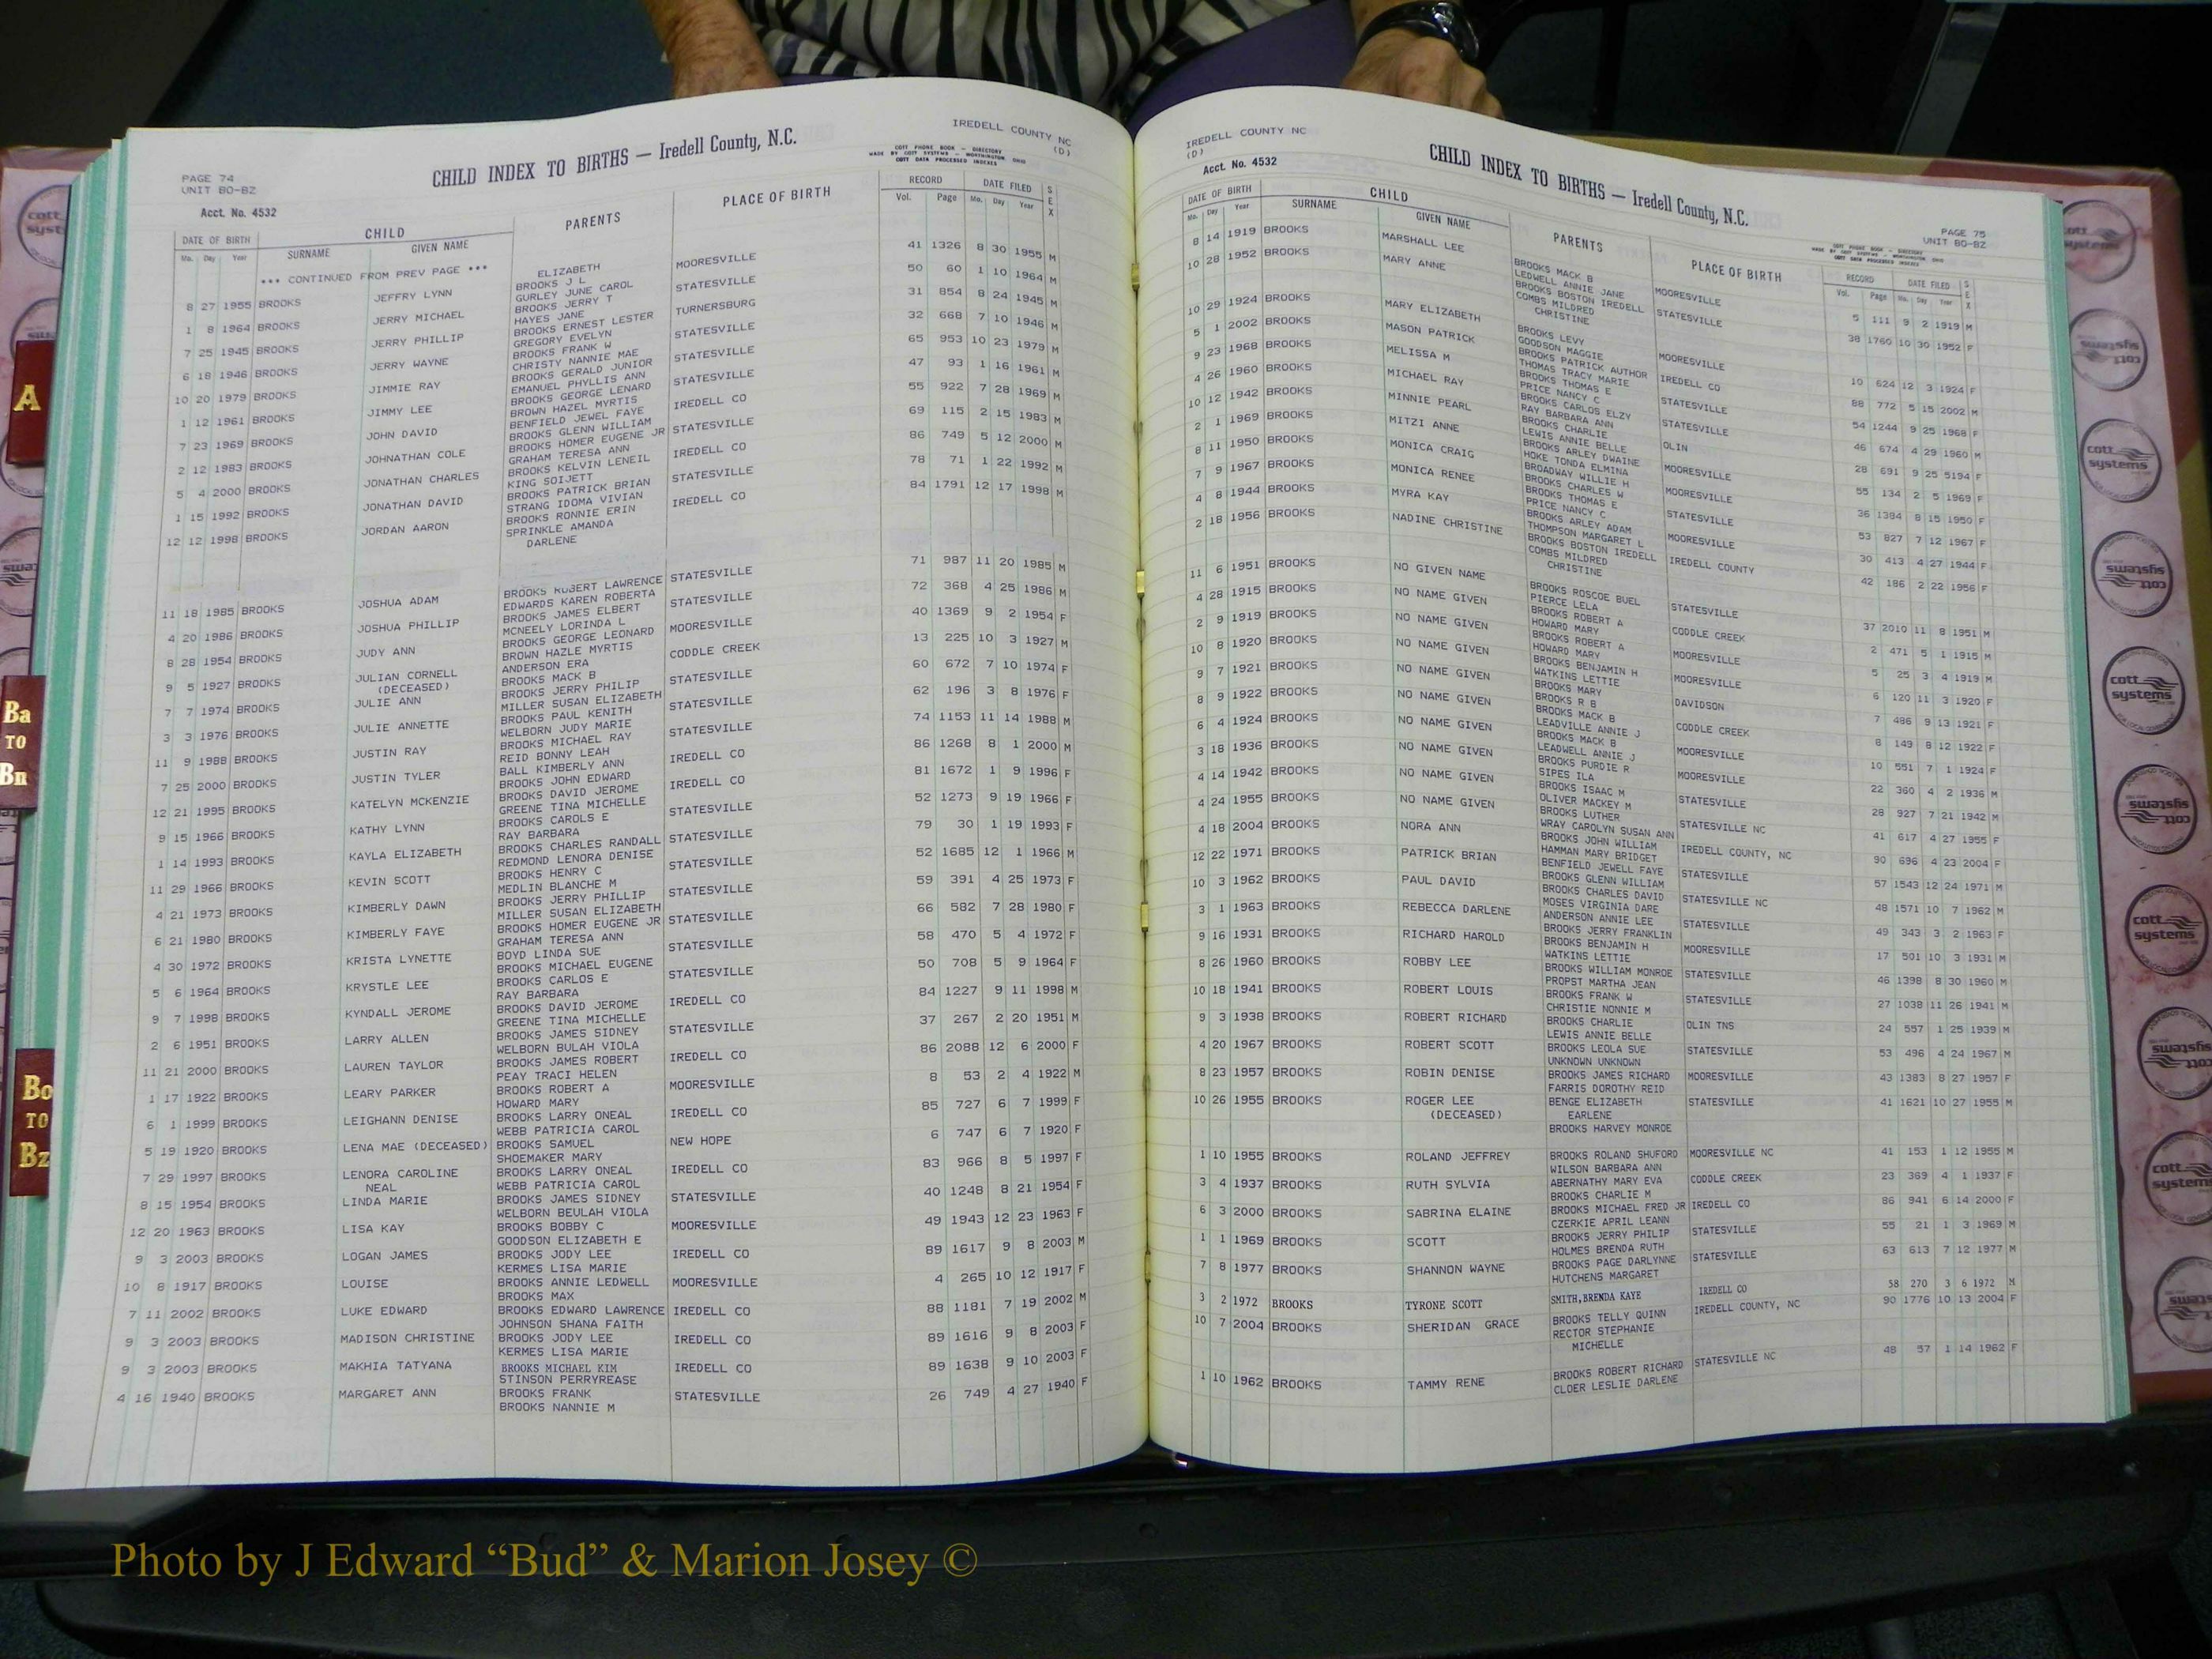 IREDELL COUNTY NC
(D)
PAGE 74
UNIT BO-BZ
CHILD INDEX TO BIRTHS — Iredell County, N.C.
COTT PHONE BOOK - DIRECTORY
MADE BY COTT SYSTEMS - WORTHINGTON OHIO
COTT DATA PROCESSED INDEXES
Acct. No. 4532
DATE OF BIRTH CHILD PARENTS PLACE OF BIRTH RECORD DATE FILED SEX
Mo. Day Year SURNAME GIVEN NAME Vol. Page Mo. Day Year
*** CONTINUED FROM PREV PAGE *** ELIZABETH
8 27 1955 BROOKS JEFFRY LYNN BROOKS J L MOORESVILLE 41 1326 8 30 1955 M
GURLEY JUNE CAROL
1 8 1964 BROOKS JERRY MICHAEL BROOKS JERRY T STATESVILLE 50 60 1 10 1964 M
HAYES JANE
7 25 1945 BROOKS JERRY PHILLIP BROOKS ERNEST LESTER TURNERSBURG 31 854 8 24 1945 M
GREGORY EVELYN
6 18 1946 BROOKS JERRY WAYNE BROOKS FRANK W STATESVILLE 32 668 7 10 1946 M
CHRISTY NANNIE MAE
10 20 1979 BROOKS JIMMIE RAY BROOKS GERALD JUNIOR STATESVILLE 65 953 10 23 1979 M
EMANUEL PHYLLIS ANN
1 12 1961 BROOKS JIMMY LEE BROOKS GEORGE LENARD STATESVILLE 47 93 1 16 1961 M
BROWN HAZEL MYRTIS
7 23 1969 BROOKS JOHN DAVID BENFIELD JEWEL FAYE STATESVILLE 55 922 7 28 1969 M
BROOKS GLENN WILLIAM
2 12 1983 BROOKS JOHNATHAN COLE BROOKS HOMER EUGENE JR IREDELL CO 69 115 2 15 1983 M
GRAHAM TERESA ANN
5 4 2000 BROOKS JONATHAN CHARLES BROOKS KELVIN LENEIL STATESVILLE 86 749 5 12 2000 M
KING SOIJETT
1 15 1992 BROOKS JONATHAN DAVID BROOKS PATRICK BRIAN IREDELL CO 78 71 1 22 1992 M
STRANG IDOMA VIVIAN
12 12 1998 BROOKS JORDAN AARON BROOKS RONNIE ERIN STATESVILLE 84 1791 12 17 1998 M
SPRINKLE AMANDA IREDELL CO
DARLENE
11 18 1985 BROOKS JOSHUA ADAM BROOKS ROBERT LAWRENCE STATESVILLE 71 987 11 20 1985 M
EDWARDS KAREN ROBERTA
4 20 1986 BROOKS JOSHUA PHILLIP BROOKS JAMES ELBERT STATESVILLE 72 368 4 25 1986 M
MCNEELY LORINDA L
8 28 1954 BROOKS JUDY ANN BROOKS GEORGE LEONARD MOORESVILLE 40 1369 9 2 1954 F
BROWN HAZLE MYRTIS
9 5 1927 BROOKS JULIAN CORNELL ANDERSON ERA CODDLE CREEK 13 225 10 3 1927 M
(DECEASED) BROOKS MACK B
7 7 1974 BROOKS JULIE ANN BROOKS JERRY PHILIP STATESVILLE 60 672 7 10 1974 F
MILLER SUSAN ELIZABETH
3 3 1976 BROOKS JULIE ANNETTE BROOKS PAUL KENITH STATESVILLE 62 196 3 8 1976 F
WELBORN JUDY MARIE
11 9 1988 BROOKS JUSTIN RAY BROOKS MICHAEL RAY STATESVILLE 74 1153 11 14 1988 M
REID BONNY LEAH
7 25 2000 BROOKS JUSTIN TYLER BALL KIMBERLY ANN IREDELL CO 86 1268 8 1 2000 M
BROOKS JOHN EDWARD
12 21 1995 BROOKS KATELYN MCKENZIE BROOKS DAVID JEROME IREDELL CO 81 1672 1 9 1996 F
GREENE TINA MICHELLE
9 15 1966 BROOKS KATHY LYNN BROOKS CAROLS E STATESVILLE 52 1273 9 19 1966 F
RAY BARBARA
1 14 1993 BROOKS KAYLA ELIZABETH BROOKS CHARLES RANDALL STATESVILLE 79 30 1 19 1993 F
REDMOND LENORA DENISE
11 29 1966 BROOKS KEVIN SCOTT BROOKS HENRY C STATESVILLE 52 1685 12 1 1966 M
MEDLIN BLANCHE M
4 21 1973 BROOKS KIMBERLY DAWN BROOKS JERRY PHILLIP STATESVILLE 59 391 4 25 1973 F
MILLER SUSAN ELIZABETH
6 21 1980 BROOKS KIMBERLY FAYE BROOKS HOMER EUGENE JR STATESVILLE 66 582 7 28 1980 F
GRAHAM TERESA ANN
4 30 1972 BROOKS KRISTA LYNETTE BOYD LINDA SUE STATESVILLE 58 470 5 4 1972 F
BROOKS MICHAEL EUGENE
5 6 1964 BROOKS KRYSTLE LEE BROOKS CARLOS E STATESVILLE 50 708 5 9 1964 F
RAY BARBARA
9 7 1998 BROOKS KYNDALL JEROME BROOKS DAVID JEROME IREDELL CO 84 1227 9 11 1998 M
GREENE TINA MICHELLE
2 6 1951 BROOKS LARRY ALLEN BROOKS JAMES SIDNEY STATESVILLE 37 267 2 20 1951 M
WELBORN BULAH VIOLA
11 21 2000 BROOKS LAUREN TAYLOR BROOKS JAMES ROBERT IREDELL CO 86 2088 12 6 2000 F
PEAY TRACI HELEN
1 17 1922 BROOKS LEARY PARKER BROOKS ROBERT A MOORESVILLE 8 53 2 4 1922 M
HOWARD MARY
6 1 1999 BROOKS LEIGHANN DENISE BROOKS LARRY ONEAL IREDELL CO 85 727 6 7 1999 F
WEBB PATRICIA CAROL
5 19 1920 BROOKS LENA MAE (DECEASED) BROOKS SAMUEL NEW HOPE 6 747 6 7 1920 F
SHOEMAKER MARY
7 29 1997 BROOKS LENORA CAROLINE BROOKS LARRY ONEAL IREDELL CO 83 966 8 5 1997 F
NEAL WEBB PATRICIA CAROL
8 15 1954 BROOKS LINDA MARIE BROOKS JAMES SIDNEY STATESVILLE 40 1248 8 21 1954 F
WELBORN BEULAH VIOLA
12 20 1963 BROOKS LISA KAY BROOKS BOBBY C MOORESVILLE 49 1943 12 23 1963 F
GOODSON ELIZABETH E
9 3 2003 BROOKS LOGAN JAMES BROOKS JODY LEE IREDELL CO 89 1617 9 8 2003 M
KERMES LISA MARIE
10 8 1917 BROOKS LOUISE BROOKS ANNIE LEDWELL MOORESVILLE 4 265 10 12 1917 F
BROOKS MAX
7 11 2002 BROOKS LUKE EDWARD BROOKS EDWARD LAWRENCE IREDELL CO 88 1181 7 19 2002 M
JOHNSON SHANA FAITH
9 3 2003 BROOKS MADISON CHRISTINE BROOKS JODY LEE IREDELL CO 89 1616 9 8 2003 F
KERMES LISA MARIE
9 3 2003 BROOKS MAKHIA TATYANA BROOKS MICHAEL KIM IREDELL CO 89 1638 9 10 2003 F
STINSON PERRYREASE
4 16 1940 BROOKS MARGARET ANN BROOKS FRANK STATESVILLE 26 749 4 27 1940 F
BROOKS NANNIE M
IREDELL COUNTY NC
(D)
Acct. No. 4532
CHILD INDEX TO BIRTHS — Iredell County, N.C.
PAGE 75
UNIT BO-BZ
DATE OF BIRTH CHILD PARENTS PLACE OF BIRTH RECORD DATE FILED SEX
Mo. Day Year SURNAME GIVEN NAME Vol. Page Mo. Day Year
8 14 1919 BROOKS MARSHALL LEE BROOKS MACK B MOORESVILLE 5 111 9 2 1919 M
LEDWELL ANNIE JANE
10 28 1952 BROOKS MARY ANNE BROOKS BOSTON IREDELL STATESVILLE 38 1760 10 30 1952 F
COMBS MILDRED
CHRISTINE
10 29 1924 BROOKS MARY ELIZABETH BROOKS LEVY MOORESVILLE 10 624 12 3 1924 F
GOODSON MAGGIE
5 1 2002 BROOKS MASON PATRICK BROOKS PATRICK AUTHOR IREDELL CO 88 772 5 15 2002 M
THOMAS TRACY MARIE
9 23 1968 BROOKS MELISSA M BROOKS THOMAS E STATESVILLE 54 1244 9 25 1968 F
PRICE NANCY C
4 26 1960 BROOKS MICHAEL RAY BROOKS CARLOS ELZY STATESVILLE 46 674 4 29 1960 M
RAY BARBARA ANN
10 12 1942 BROOKS MINNIE PEARL BROOKS CHARLIE OLIN 28 691 9 25 5194 F
LEWIS ANNIE BELLE
2 1 1969 BROOKS MITZI ANNE BROOKS ARLEY DWAINE MOORESVILLE 55 134 2 5 1969 F
HOKE TONDA ELMINA
8 11 1950 BROOKS MONICA CRAIG BROADWAY WILLIE H MOORESVILLE 36 1394 8 15 1950 F
BROOKS CHARLES W
7 9 1967 BROOKS MONICA RENEE BROOKS THOMAS E STATESVILLE 53 827 7 12 1967 F
PRICE NANCY C
4 8 1944 BROOKS MYRA KAY BROOKS ARLEY ADAM MOORESVILLE 30 413 4 27 1944 F
THOMPSON MARGARET L
2 18 1956 BROOKS NADINE CHRISTINE BROOKS BOSTON IREDELL IREDELL COUNTY 42 186 2 22 1956 F
COMBS MILDRED
CHRISTINE
11 6 1951 BROOKS NO GIVEN NAME BROOKS ROSCOE BUEL STATESVILLE 37 2010 11 8 1951 M
PIERCE LELA
4 28 1915 BROOKS NO NAME GIVEN BROOKS ROBERT A CODDLE CREEK 2 471 5 1 1915 M
HOWARD MARY
2 9 1919 BROOKS NO NAME GIVEN BROOKS ROBERT A MOORESVILLE 5 25 3 4 1919 M
HOWARD MARY
10 8 1920 BROOKS NO NAME GIVEN BROOKS BENJAMIN H MOORESVILLE 6 120 11 3 1920 F
WATKINS LETTIE
9 7 1921 BROOKS NO NAME GIVEN BROOKS MARY DAVIDSON 7 486 9 13 1921 F
BROOKS R B
8 9 1922 BROOKS NO NAME GIVEN BROOKS MACK B CODDLE CREEK 8 149 8 12 1922 F
LEADVILLE ANNIE J
6 4 1924 BROOKS NO NAME GIVEN BROOKS MACK B MOORESVILLE 10 551 7 1 1924 F
LEADWELL ANNIE J
3 18 1936 BROOKS NO NAME GIVEN BROOKS PURDIE R MOORESVILLE 22 360 4 2 1936 M
SIPES ILA
4 14 1942 BROOKS NO NAME GIVEN BROOKS ISAAC M STATESVILLE 28 927 7 21 1942 M
OLIVER MACKEY M
4 24 1955 BROOKS NO NAME GIVEN BROOKS LUTHER STATESVILLE NC 41 617 4 27 1955 F
WRAY CAROLYN SUSAN ANN
4 18 2004 BROOKS NORA ANN BROOKS JOHN WILLIAM IREDELL COUNTY, NC 90 696 4 23 2004 F
HAMMAN MARY BRIDGET
12 22 1971 BROOKS PATRICK BRIAN BENFIELD JEWELL FAYE STATESVILLE 57 1543 12 24 1971 M
BROOKS GLENN WILLIAM
10 3 1962 BROOKS PAUL DAVID BROOKS CHARLES DAVID STATESVILLE NC 48 1571 10 7 1962 M
MOSES VIRGINIA DARE
3 1 1963 BROOKS REBECCA DARLENE ANDERSON ANNIE LEE STATESVILLE 49 343 3 2 1963 F
BROOKS JERRY FRANKLIN
9 16 1931 BROOKS RICHARD HAROLD BROOKS BENJAMIN H MOORESVILLE 17 501 10 3 1931 M
WATKINS LETTIE
8 26 1960 BROOKS ROBBY LEE BROOKS WILLIAM MONROE STATESVILLE 46 1398 8 30 1960 M
PROPST MARTHA JEAN
10 18 1941 BROOKS ROBERT LOUIS BROOKS FRANK W STATESVILLE 27 1038 11 26 1941 M
CHRISTIE NONNIE M
9 3 1938 BROOKS ROBERT RICHARD BROOKS CHARLIE OLIN TNS 24 557 1 25 1939 M
LEWIS ANNIE BELLE
4 20 1967 BROOKS ROBERT SCOTT BROOKS LEOLA SUE STATESVILLE 53 496 4 24 1967 M
UNKNOWN UNKNOWN
8 23 1957 BROOKS ROBIN DENISE BROOKS JAMES RICHARD MOORESVILLE 43 1383 8 27 1957 F
FARRIS DOROTHY REID
10 26 1955 BROOKS ROGER LEE BENGE ELIZABETH STATESVILLE 41 1621 10 27 1955 M
(DECEASED) EARLENE
BROOKS HARVEY MONROE
1 10 1955 BROOKS ROLAND JEFFREY BROOKS ROLAND SHUFORD MOORESVILLE NC 41 153 1 12 1955 M
WILSON BARBARA ANN
3 4 1937 BROOKS RUTH SYLVIA ABERNATHY MARY EVA CODDLE CREEK 23 369 4 1 1937 F
BROOKS CHARLIE M
6 3 2000 BROOKS SABRINA ELAINE BROOKS MICHAEL FRED JR IREDELL CO 86 941 6 14 2000 F
CZERKIE APRIL LEANN
1 1 1969 BROOKS SCOTT BROOKS JERRY PHILIP STATESVILLE 55 21 1 3 1969 M
HOLMES BRENDA RUTH
7 8 1977 BROOKS SHANNON WAYNE BROOKS PAGE DARLYNNE STATESVILLE 63 613 7 12 1977 M
HUTCHENS MARGARET
3 2 1972 BROOKS TYRONE SCOTT SMITH,BRENDA KAYE IREDELL CO 58 270 3 6 1972 M
10 7 2004 BROOKS SHERIDAN GRACE BROOKS TELLY QUINN IREDELL COUNTY, NC 90 1776 10 13 2004 F
RECTOR STEPHANIE
MICHELLE
1 10 1962 BROOKS TAMMY RENE BROOKS ROBERT RICHARD STATESVILLE NC 48 57 1 14 1962 F
CLOER LESLIE DARLENE
A
Ba
TO
Bn
Bo
TO
Bz
cott
systems
Photo by J Edward “Bud” & Marion Josey ©